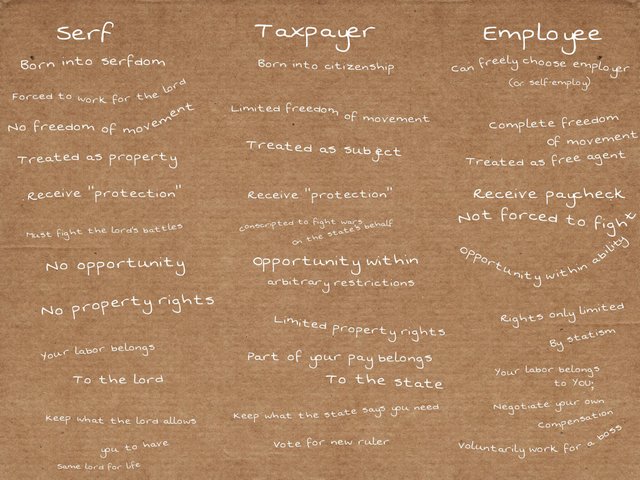 Serf
Born into serfdom
Forced to work for the lord
No freedom of movement
Treated as property
Receive "protection"
Must fight the lord's battles
No opportunity
No property rights
Your labor belongs
To the lord
Keep what the lord allows
you to have
Same lord for life
Taxpayer
Born into citizenship
Limited freedom of movement
Treated as subject
Receive "protection"
conscripted to fight wars
on the state's behalf
Opportunity within
arbitrary restrictions
Limited property rights
Part of your pay belongs
To the state
Keep what the state says you need
Vote for new ruler
Employee
Can freely choose employer
(or self-employ)
Complete freedom
of movement
Treated as free agent
Receive paycheck
Not forced to fight
Opportunity within ability
Rights only limited
By statism
Your labor belongs
to You;
Negotiate your own
compensation
Voluntarily work for a boss